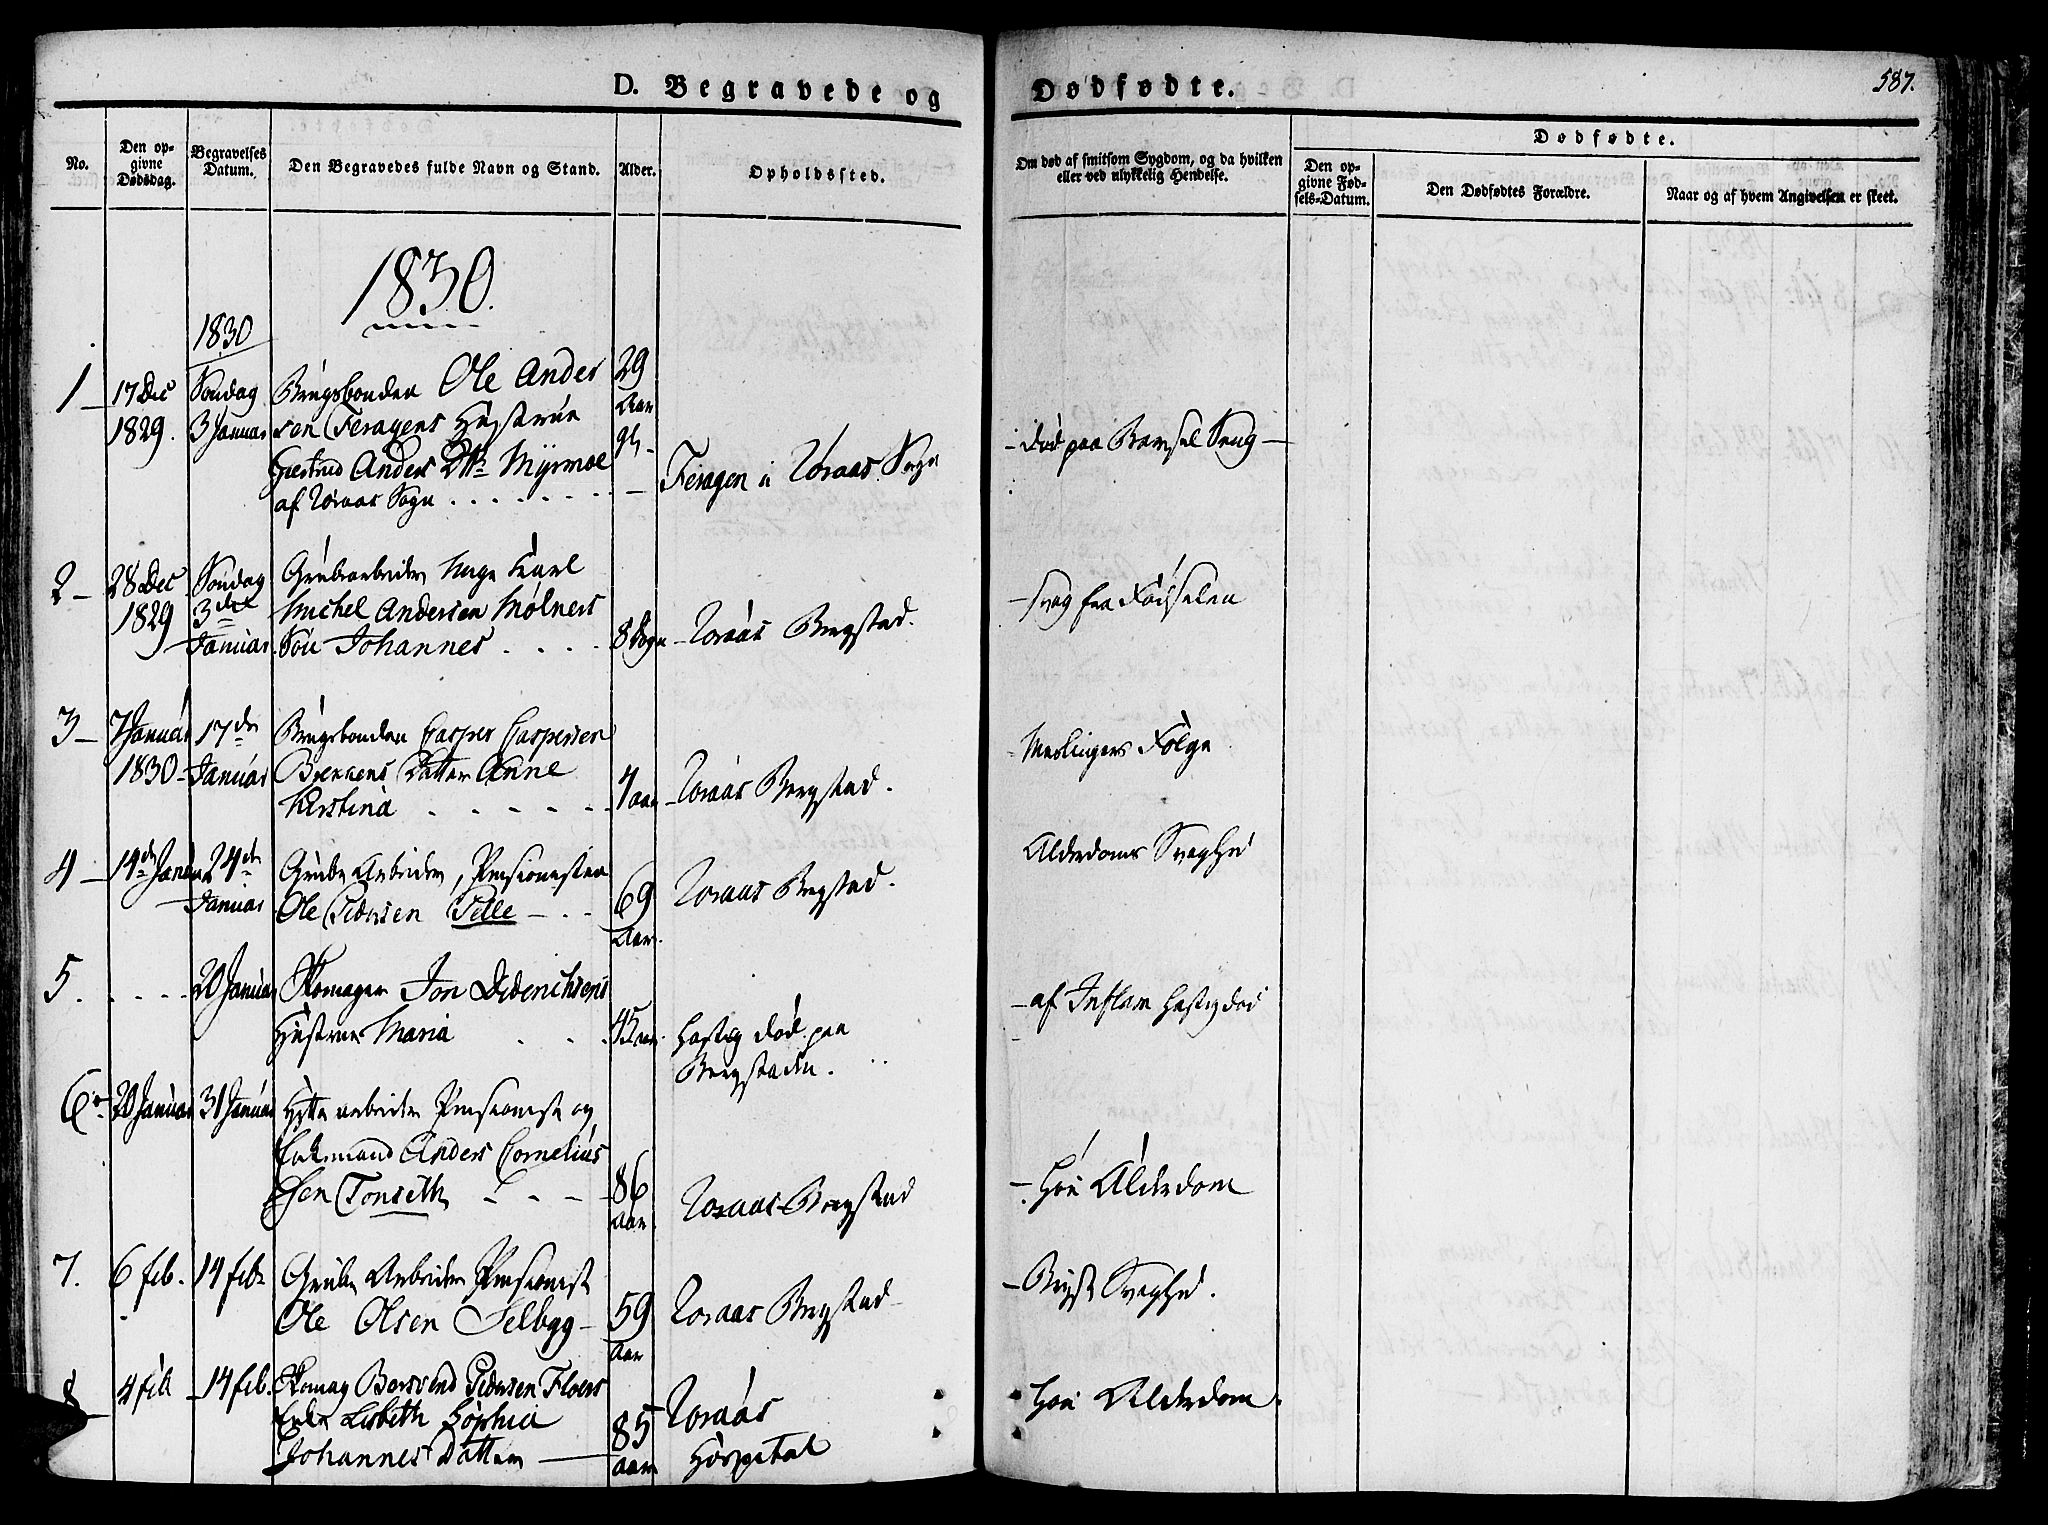 D. Begravede og Dødfødte.
587.
No.
Den opgivne Dødsdag.
Begravelses Datum.
Den Begravedes fulde Navn og Stand.
Alder.
Opholdssted.
Om død af smitsom Sygdom, og da hvilken eller ved ulykkelig Hendelse.
Dødfødte.
Den opgivne Fødsels-Datum.
Den Dødfødtes Forældre.
Naar og af hvem Angivelsen er skeet.
1830.
1830
1 17 Dec 1829. Søndag 3 Januar
Brugsbonden Ole Ander
sen Feragens Hustrue
Anders Dttr Myrmoe
af Røraas Sogn
29 Aar
Feragen i Røraas Sogn
død paa Barsel Seng
2 28 Dec 1829 Søndag 3die Januar
Grubearbeider
Michel Andersen Mølners
Søn Johannes
8 Dage
Røraas Bergstad.
svag fra Fødselen
3 7 Januar 1830 17de Januar
Brugsbonden Casper Caspersen
Brekkens Datter Anne
Kirstina
4 aar
Røraas Bergstad.
Meslingers Følge
4 14de Januar 24de Januar
Grube Arbeider, Pensionisten
Ole Pedersen Pelle
69 Aar.
Røraas Bergstad.
Alderdoms Svaghed
5. 20 Januar
Skomager Jon Diderichsens
Hustrue Maria
45 aar.
hastig død paa
Bergstaden.
af Inflam hastig død
6 20 Januar 31 Januar
Hytte arbeider Pensionist og
Enkemand Anders Cornelius
sen Tonseth
86 aar
Røraas Bergstad
høi Alderdom
7. 6 feb. 14 feb.
Grube Arbeider Pensionist
Ole Olsen Selbyg
59 aar
Røraas Bergstad
Bryst Svaghed.
8 4 feb 14 feb.
Skomag Borsvend Pedersen Floers
Enke Lisbeth Sophia
Johannes Datter
85 aar
Røraas
Hospital
høi Alderdom.